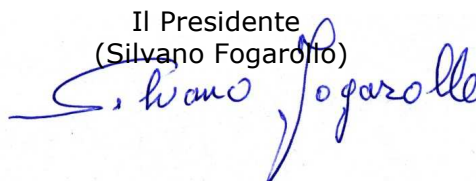 Il Presidente
(Silvano Fogarollo)
Silvano Fogarollo